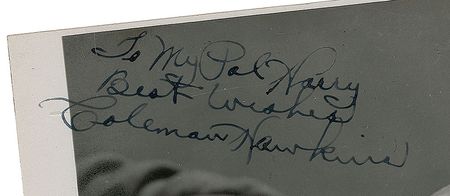 To My Pal Harry
Best Wishes
Coleman Hawkins